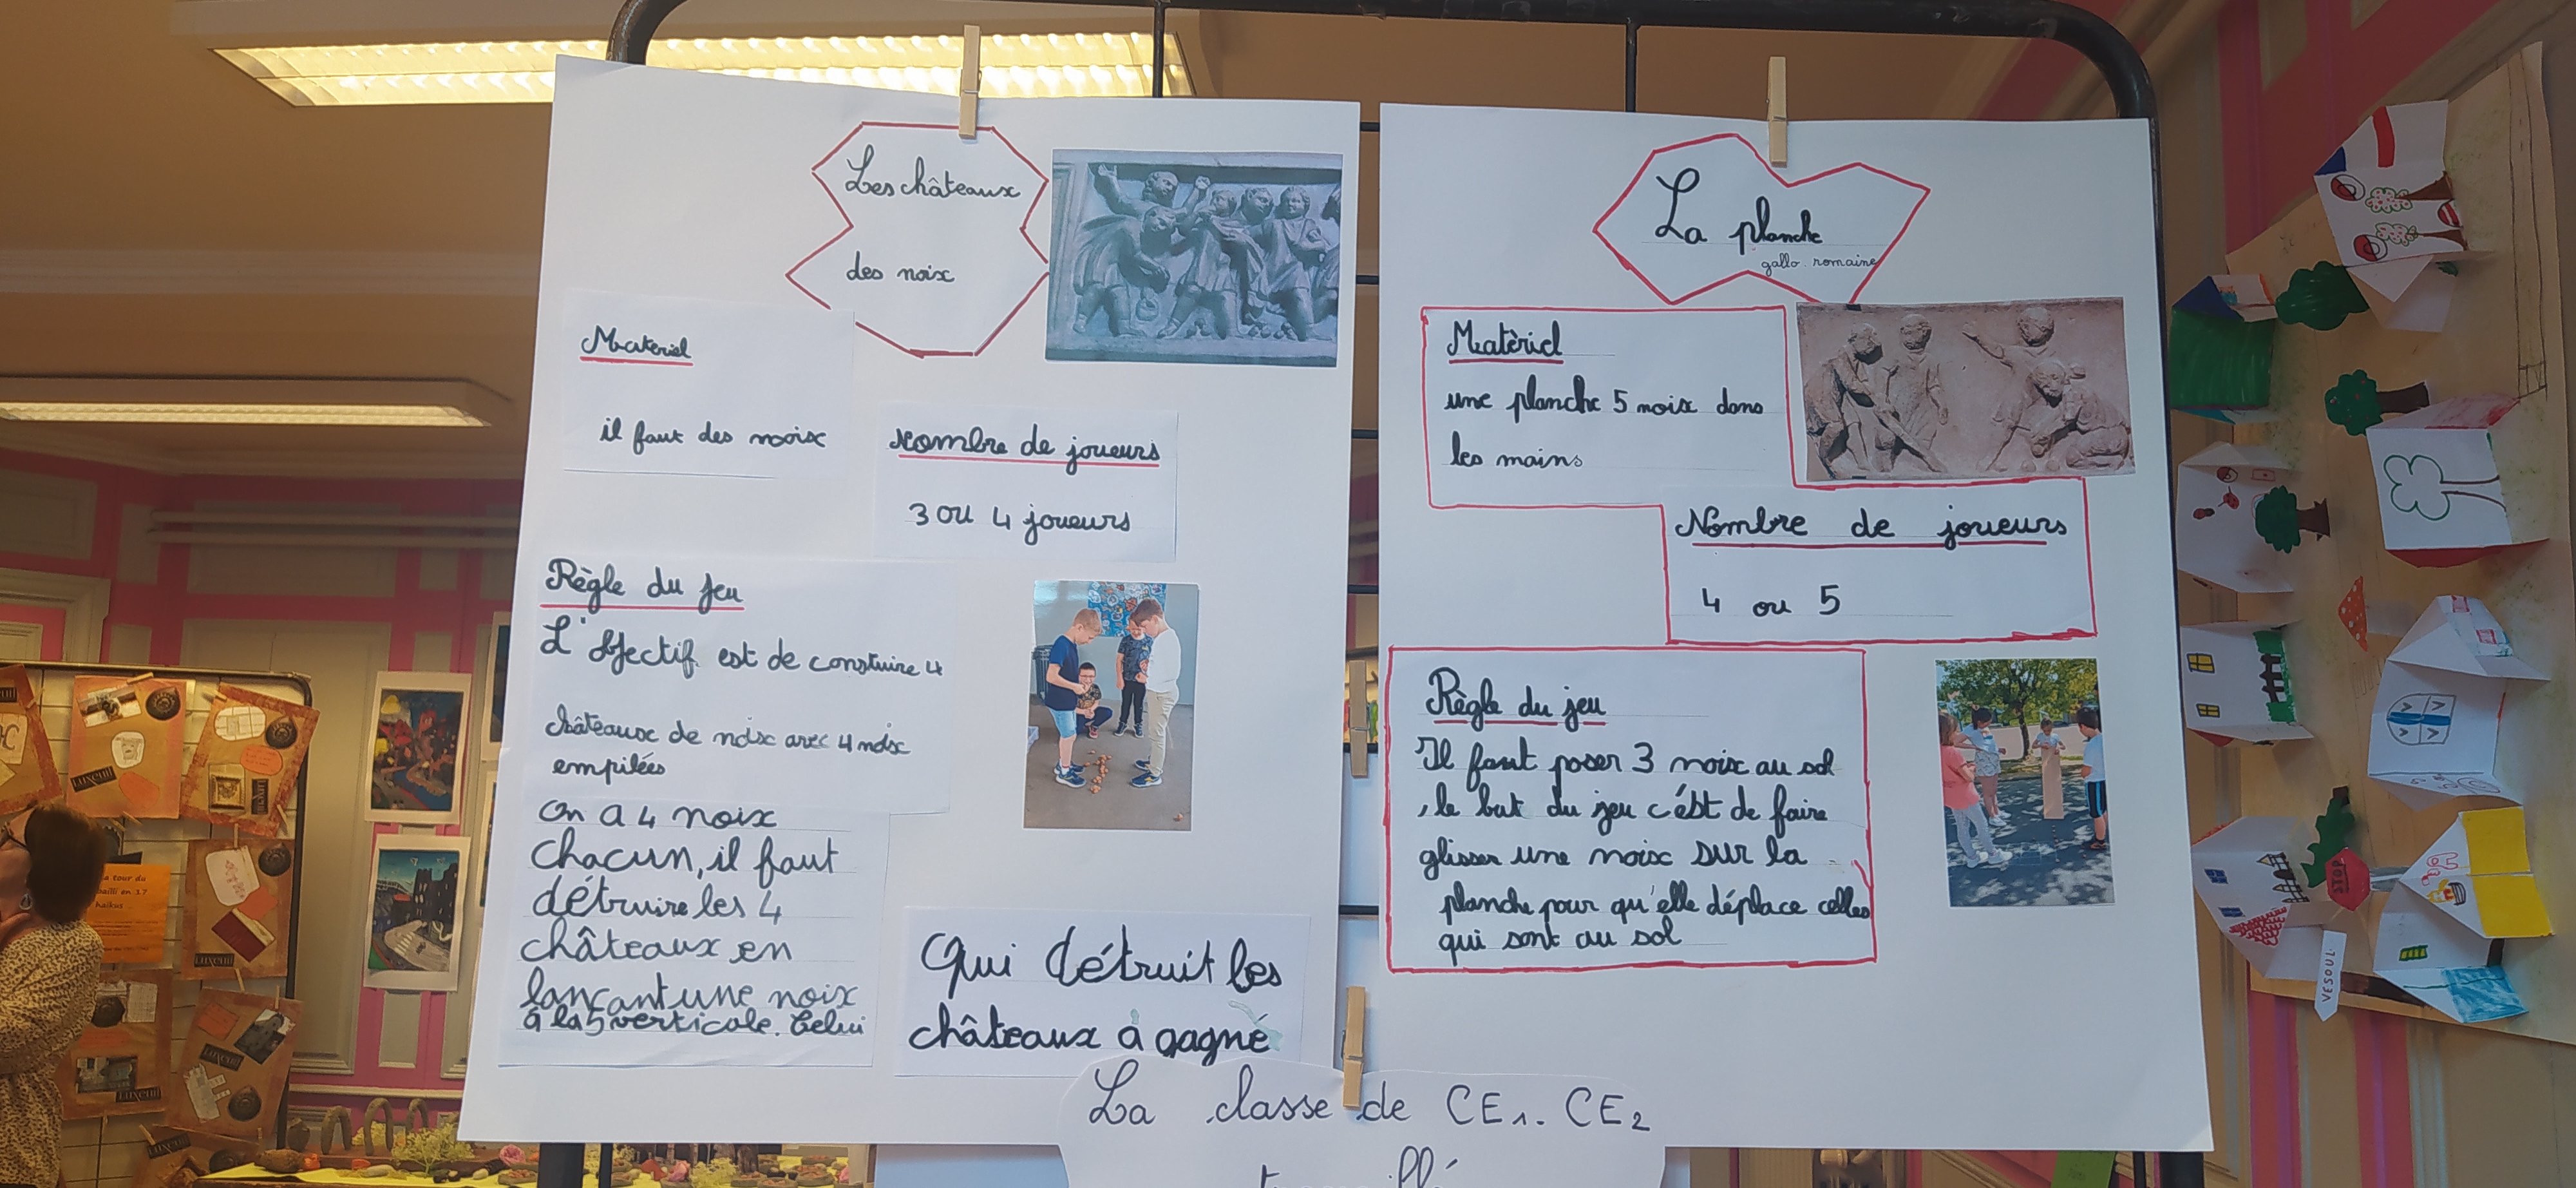 Les châteaux
des noix
Matériel
il faut des noix
Nombre de joueurs
3 ou 4 joueurs
Règle du jeu
L'objectif est de constuire 4
châteaux de noix avec 4 noix
empilées
On a 4 noix
chacun, il faut
détruire les 4
châteaux en
lançant une noix
à la verticale. Celui
Qui détruit les
châteaux à gagné
La planche
gallo-romaine
Matèriel
une planche 5 noix dans
les mains
Nombre de joueurs
4 ou 5
Règle du jeu
Il faut poser 3 noix au sol
, le but du jeu c'ést de faire
glisser une noix sur la
planche pour qu'elle déplace celles
qui sont au sol
La classe de CE1. CE2
STOP
VESOUL
a tour du
bailli en 17
haïkus
Luxeuil
Luxeuil
Luxeuil
Luxeuil